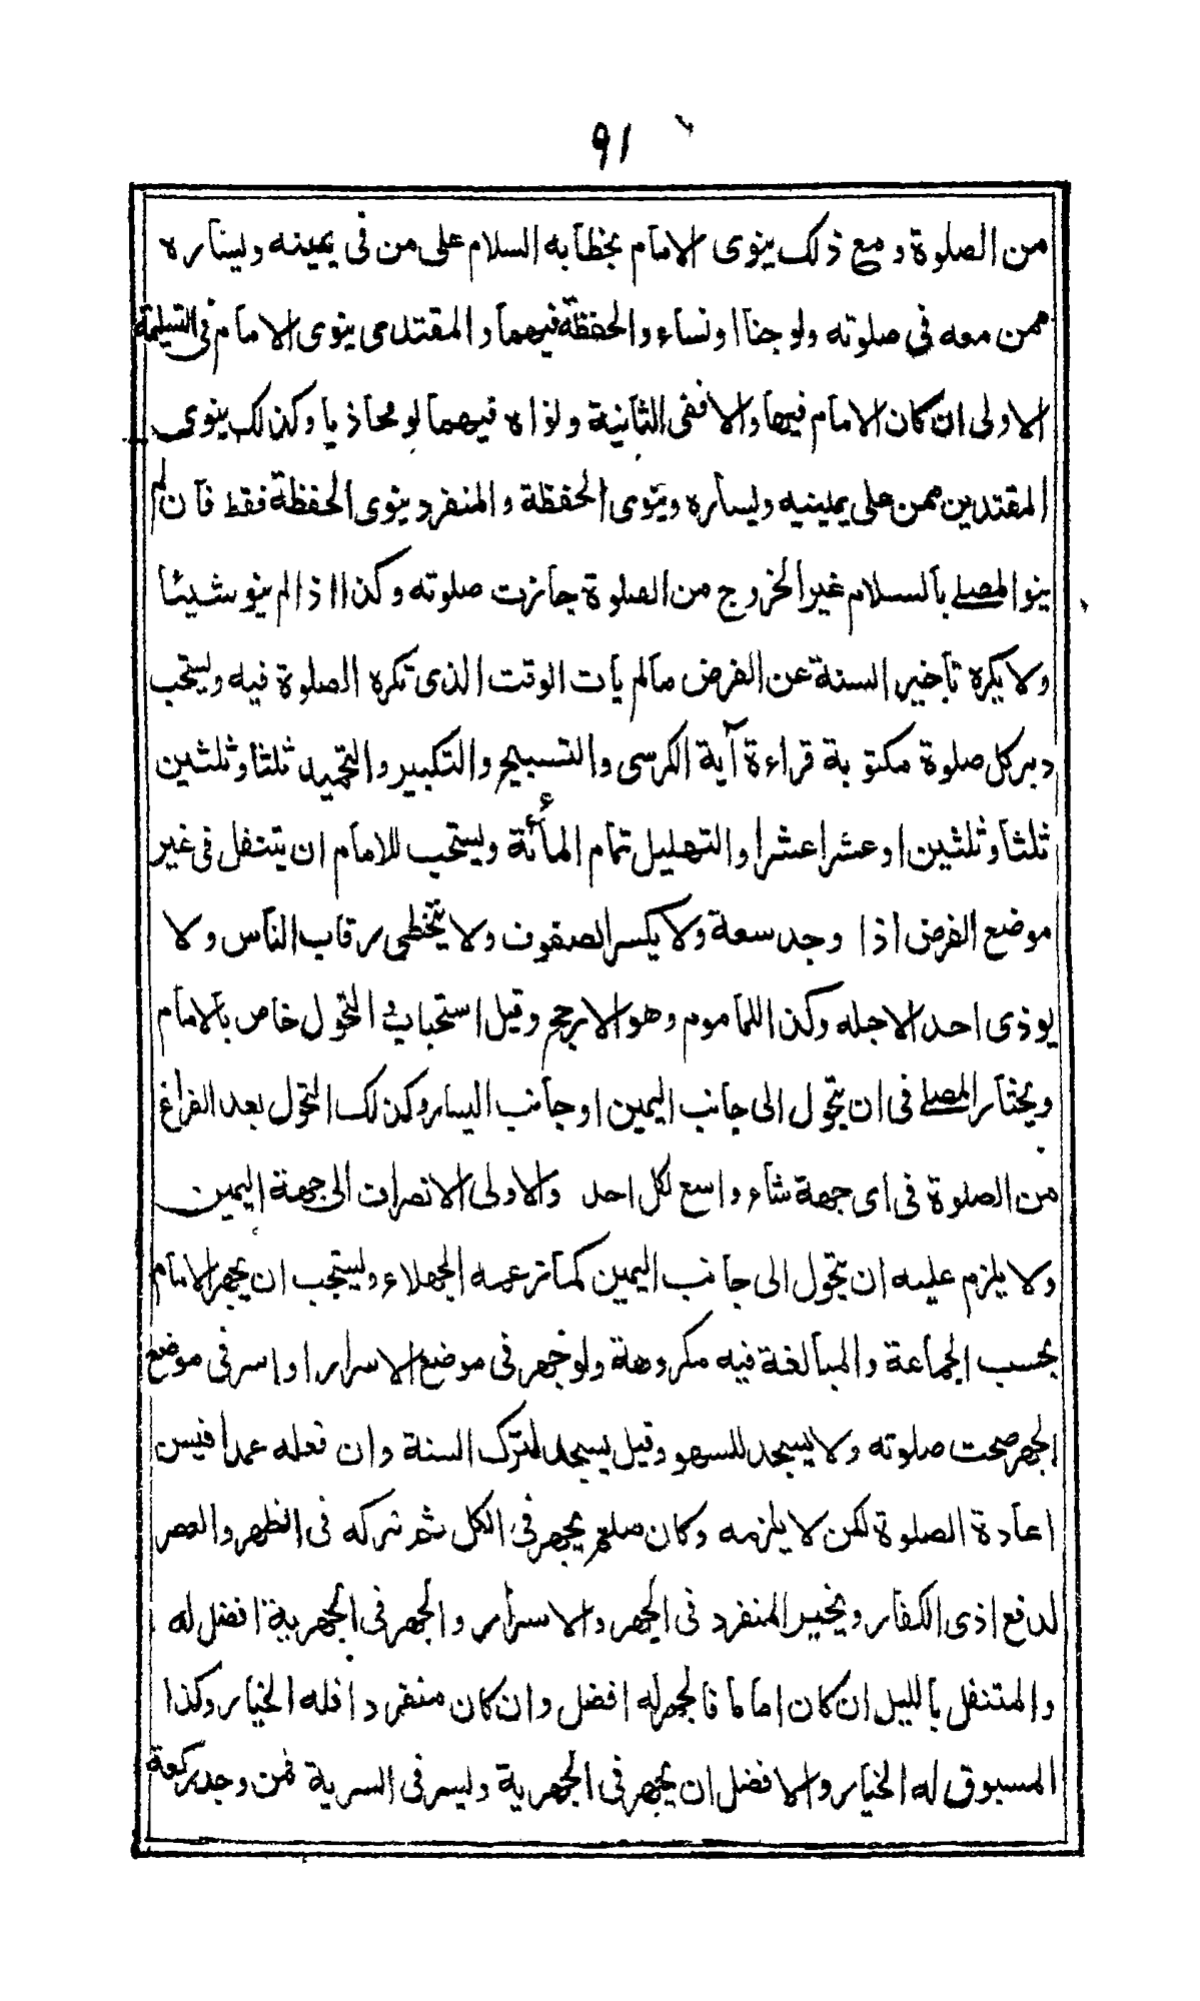 ٩١
من الصلوة ومع ذلك ينوى الامام بخطابه السلام على من فى يمينه ويساره
ممن معه فى صلوته ولو جنا او نساء والحفظة فيهما والمقتدى ينوى الامام فى التسليمة
الاولى ان كان الامام فيها والا ففى الثانية ونواه فيهما لو محاذيا وكذلك ينوى
المقتدين ممن على يمينيه ويساره وينوى الحفظة والمنفرد ينوى الحفظة فقط فآن لم
ينو المصلے بالسلام غير الخروج من الصلوة جازت صلوته وكذا اذا لم ينو شيئا
ولا يكره تأخير السنة عن الفرض مالم يات الوقت الذى تكره الصلوة فيه ويستحب
دبر كل صلوة مكتوبة قراءة آية الكرسى والتسبيح والتكبير والتحميد ثلثا وثلثين
ثلثا وثلثين او عشرا عشرا والتهليل تمام المأئة ويستحب للامام ان يتنفل فى غير
موضع الفرض اذا وجد سعة ولا يكسر الصفوف ولا يتخطى رقاب الناس ولا
يوذى احد الاجله وكذا للماموم وهو الارجح وقيل استحباب فى التحول خاص بالامام
ويختار المصلے فى ان يتحول الى جانب اليمين او جانب اليسار وكذلك التحول بعد الفراغ
من الصلوة فى اى جهة شاء واسع لكل احد والاولى الانصراف الى جهة اليمين
ولا يلزم عليه ان يتحول الى جانب اليمين كما زعمه الجهلاء ويستحب ان يجهر الامام
بحسب الجماعة والمبالغة فيه مكروهة ولو جهر فى موضع الاسرار او اسر فى موضع
الجهر صحت صلوته ولا يسجد للسهو وقيل يسجد لترك السنة وان فعله عمدا فيسن
اعادة الصلوة لكن لا يلزمه وكان صلعم يجهر فى الكل ثم تركه فى الظهر والعصر
لدفع اذى الكفار ويخير المنفرد فى الجهر والاسرار والجهر فى الجهرية افضل له
والمتنفل بالليل ان كان اماما فالجهر له افضل وان كان منفردا فله الخيار وكذا
المسبوق له الخيار والافضل ان يجهر فى الجهرية ويسر فى السرية فمن وجد ركعة